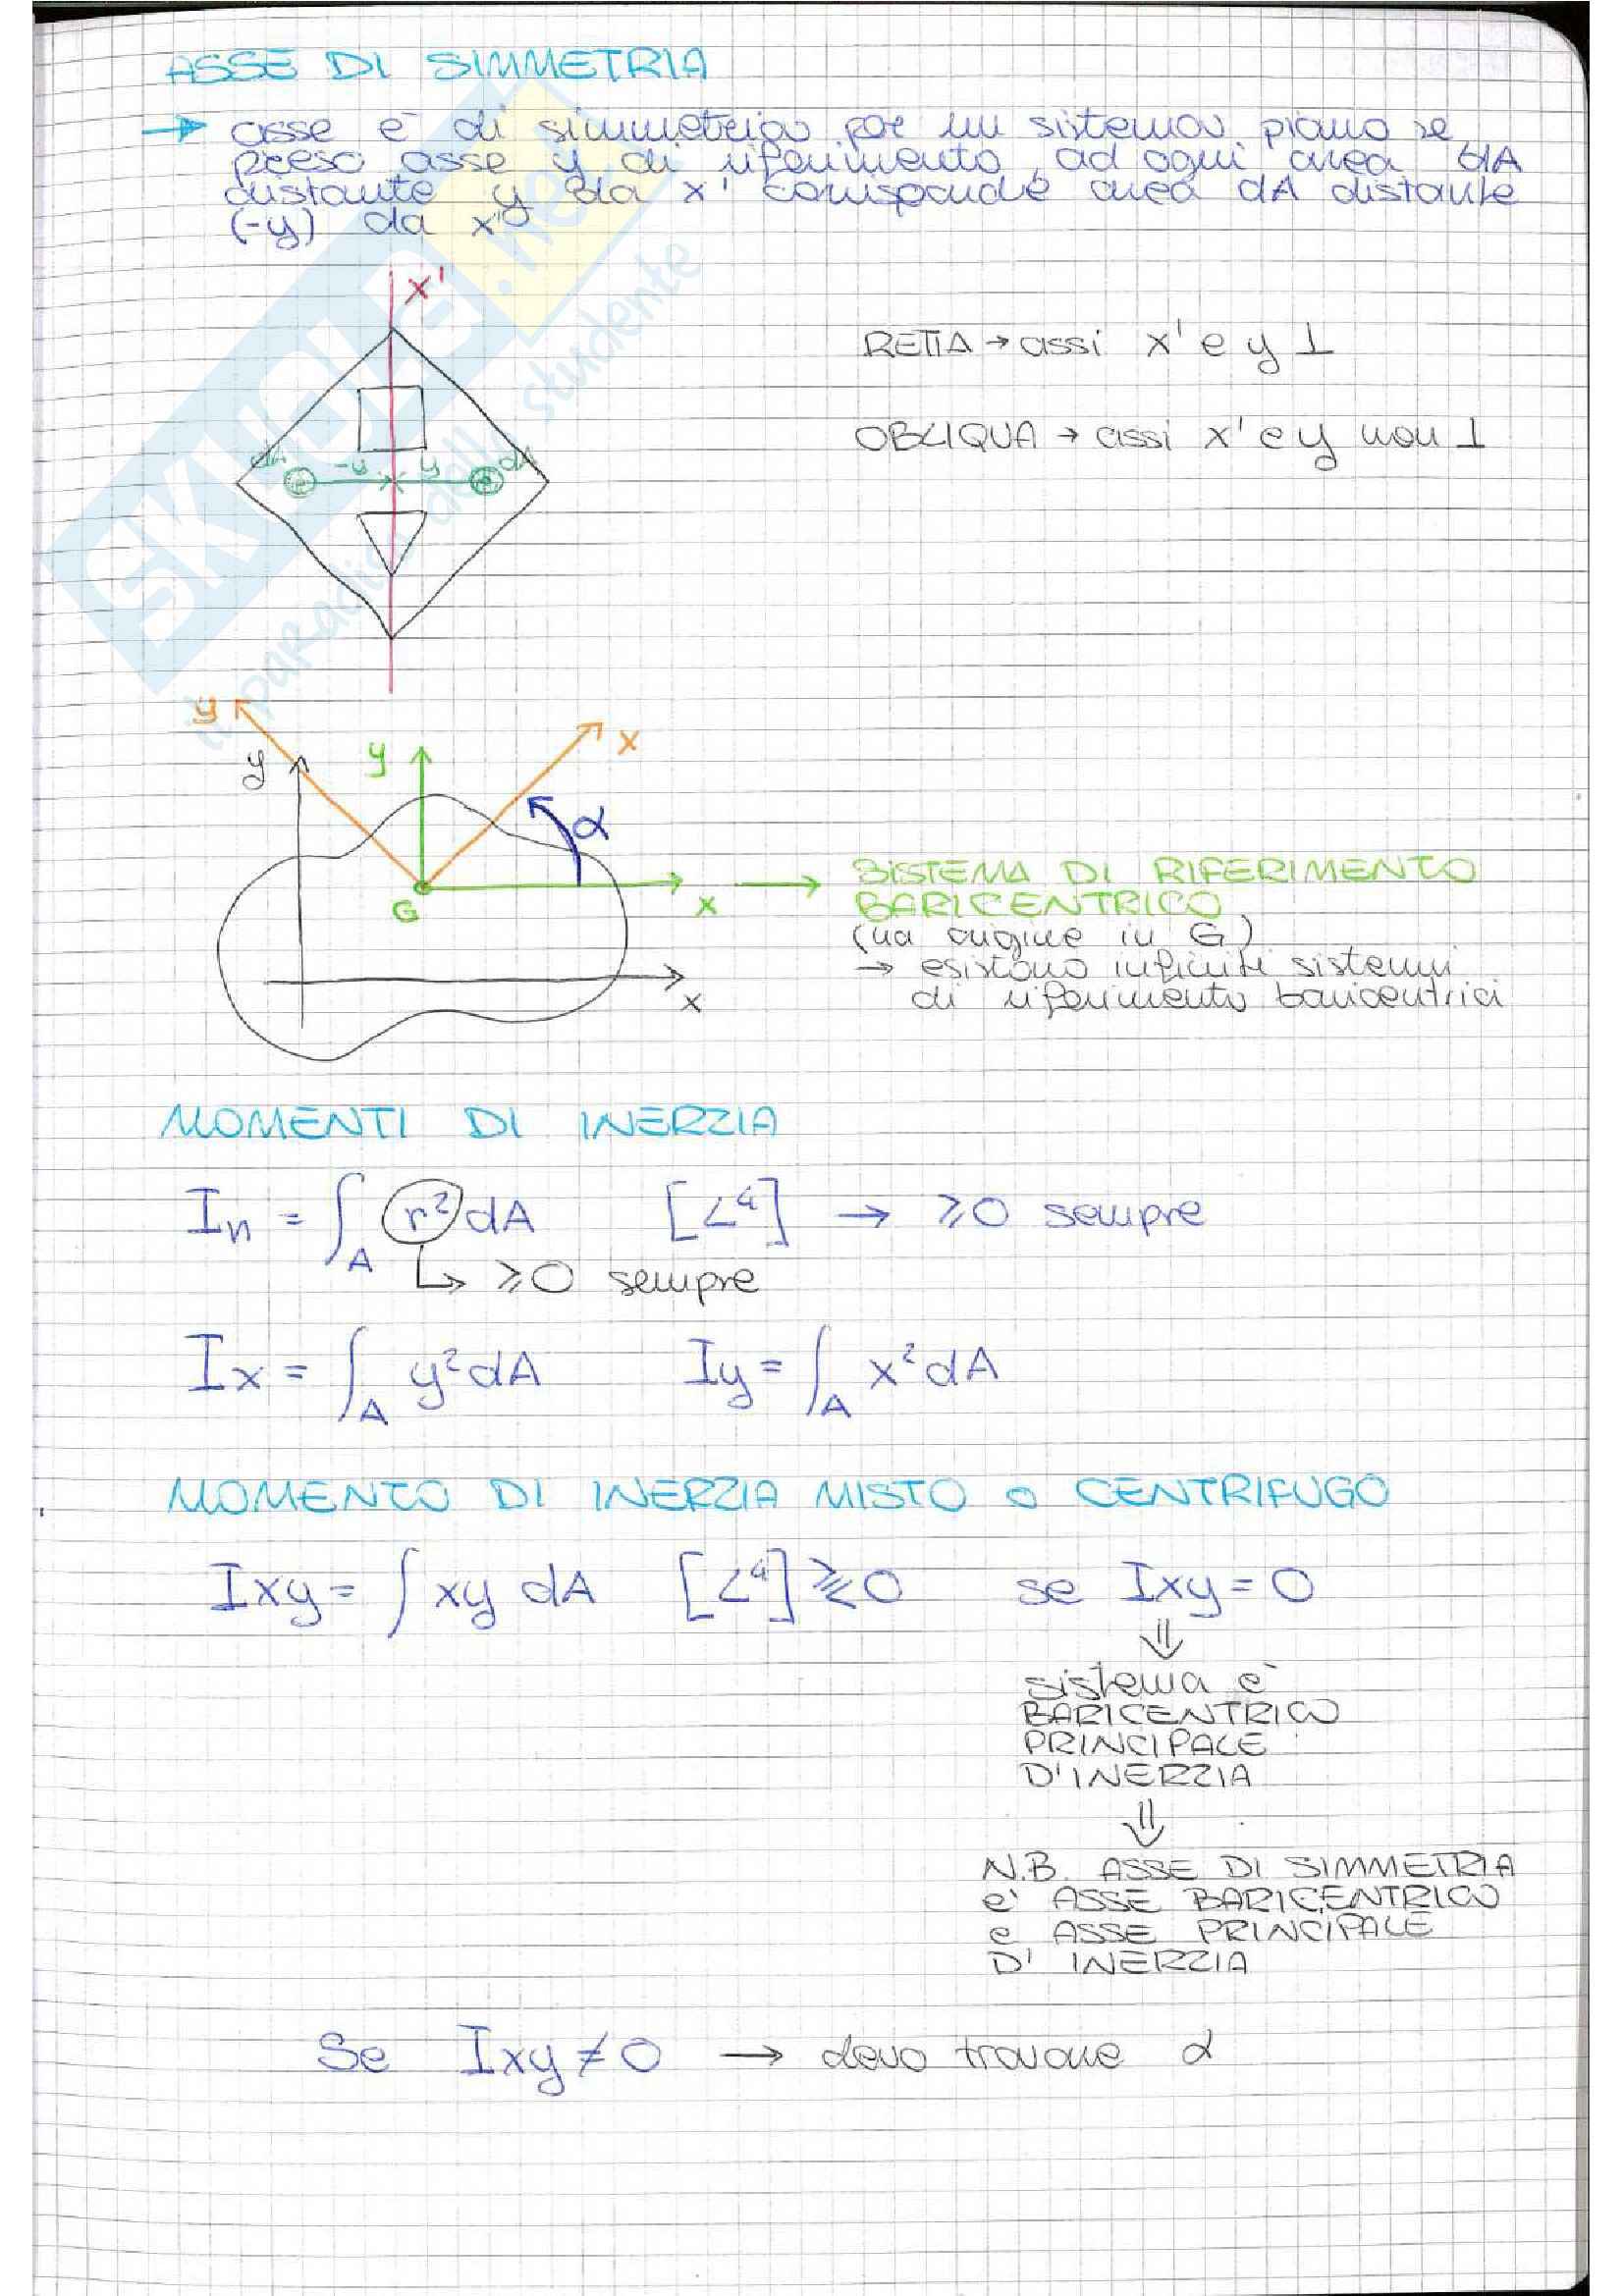 ASSE DI SIMMETRIA
→ asse è di simmetria per un sistema piano se
preso asse y di riferimento, ad ogni area dA
distante y da x' corrisponde area dA distante
(-y) da x'
x'
RETTA → assi x' e y ⊥
OBLIQUA → assi x' e y non ⊥
dA -y y dA
y x
y y α
G x → SISTEMA DI RIFERIMENTO
BARICENTRICO
(ha origine in G)
→ esistono infiniti sistemi
di riferimento baricentrici
x
MOMENTI DI INERZIA
In = ∫A r² dA [L⁴] → ≥0 sempre
↳ ≥0 sempre
Ix = ∫A y² dA Iy = ∫A x² dA
MOMENTO DI INERZIA MISTO o CENTRIFUGO
Ixy = ∫ xy dA [L⁴] ⪌ 0 se Ixy = 0
⇓
sistema è
BARICENTRICO
PRINCIPALE
D'INERZIA
⇓
N.B. ASSE DI SIMMETRIA
è ASSE BARICENTRICO
e ASSE PRINCIPALE
D'INERZIA
Se Ixy ≠ 0 → devo trovare α
SKUOLA.net
il paradiso dello studente